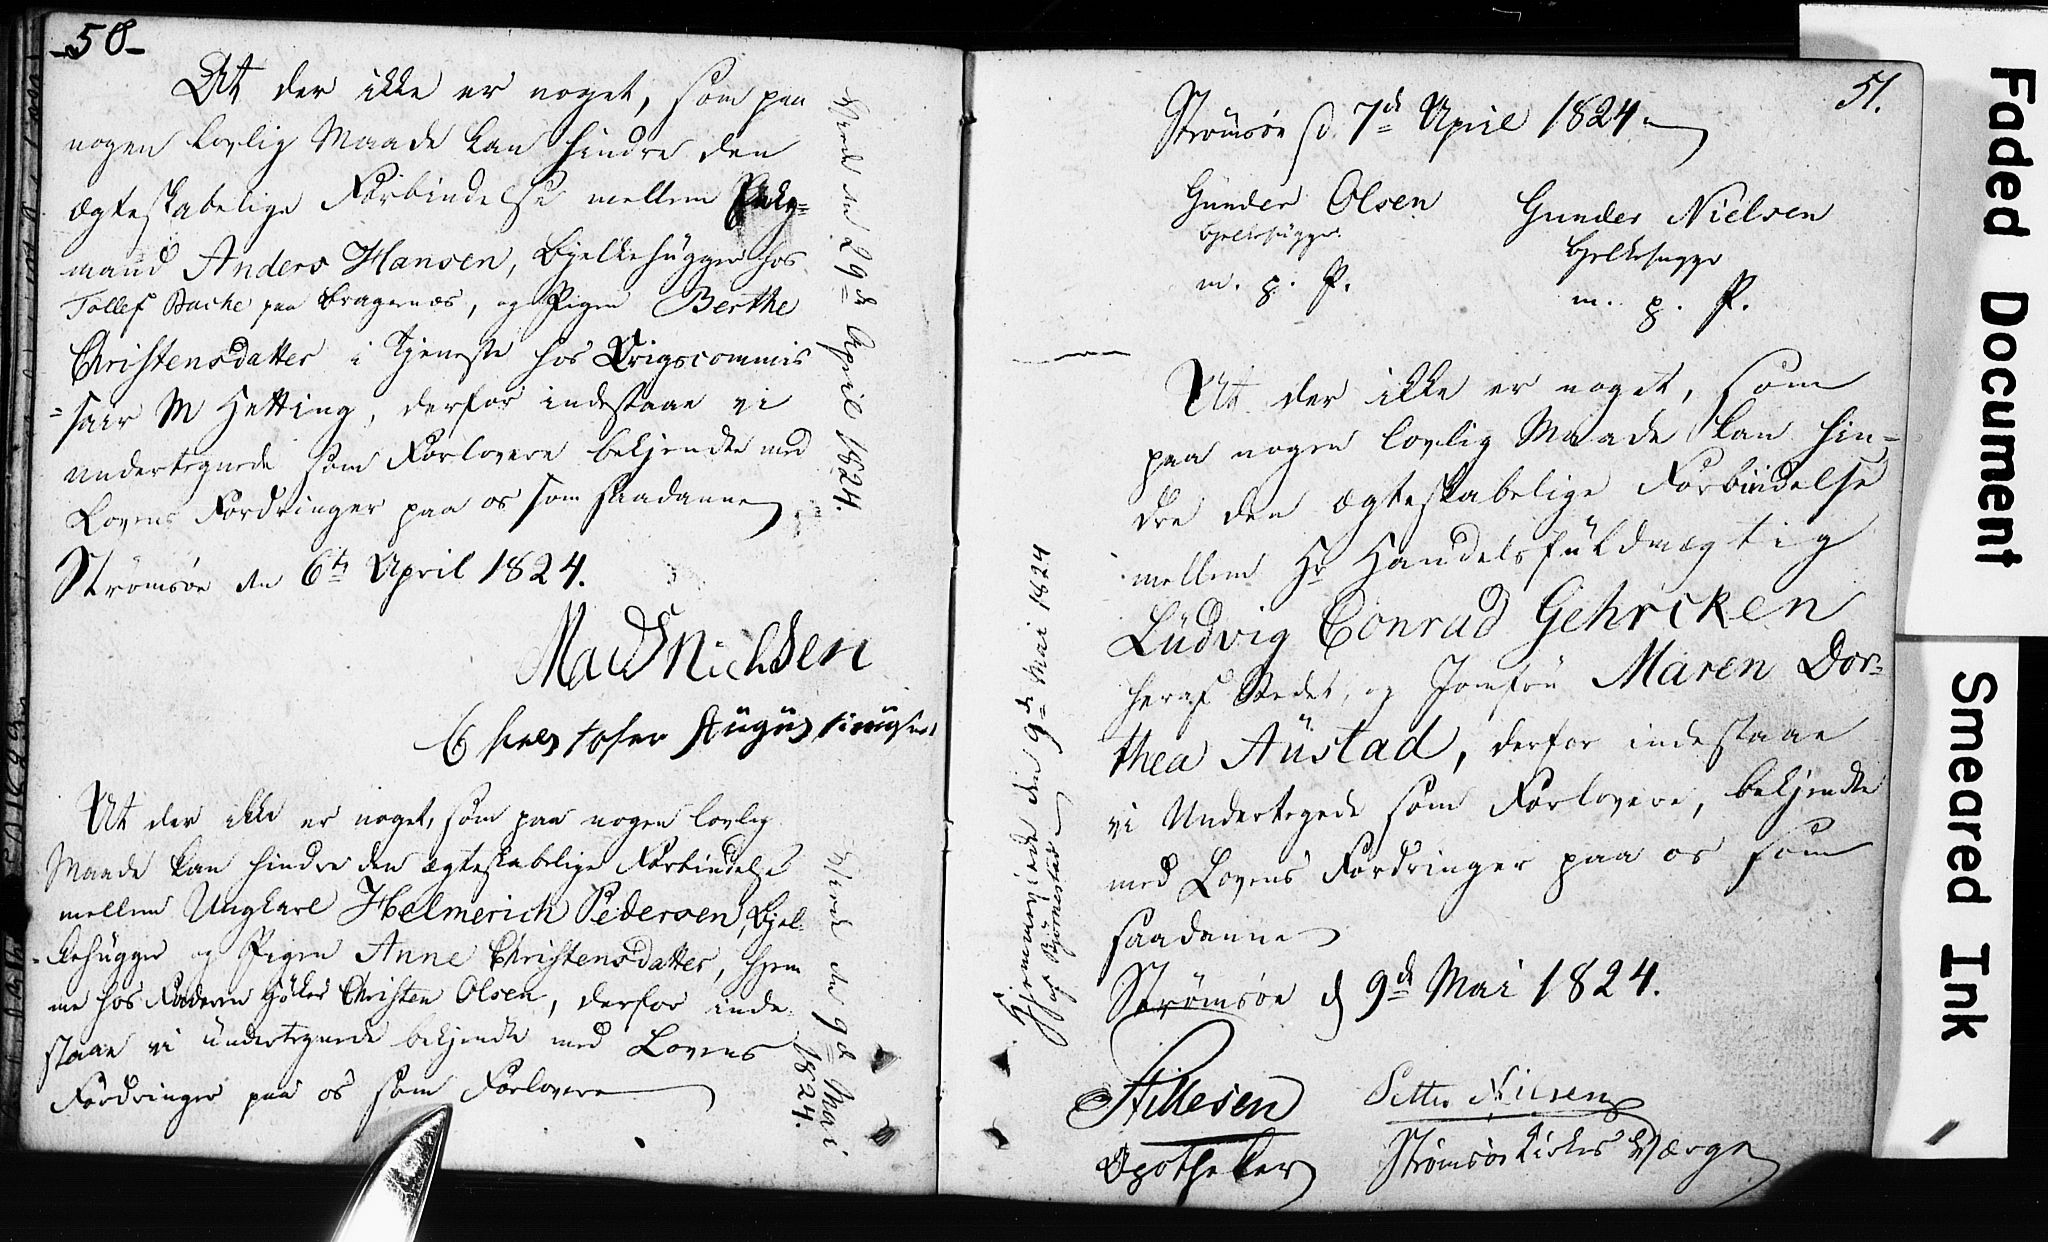 -50-
At der ikke er noget, som paa
nogen lovlig Maade kan hindre den
ægteskabelige Forbindelse mellem
mand Anders Hansen, Bjelkehügger hos
Tollef Bache paa Bragernæs, og Pigen Berthe
Christensdatter i Tjeneste hos Krigscommis
=sair M Hetting, derfor indestaae vi
undertegnede som Forlovere bekjendte med
Lovens Fordringer paa os som saadanne
Strömsöe den 6te April 1824.
Mads Nichlsen
Viede den 29de April 1824.
At der ikke er noget, som paa nogen lovlig
Maade kan hindre den ægteskabelige Forbindelse
mellem Ungkarl Helmerich Pedersen, Bjel-
kehügger og Pigen Anne Christensdatter, hjem
me hos Faderen Christen Olsen, derfor inde-
staae vi undertegnede bekjendte med Lovens
Fordringer paa os som Forlovere
Viede den 9de Mai
1824.
51.
Strömsöe d. 7de April 1824.
Günder Olsen
Bjelkehügger
m. p. P.
Gunder Nielsen
Bjelkehugger
m. p. P.
At der ikke er noget, som
paa nogen lovlig Maade kan hin-
dre den ægteskabelige Forbindelse
mellem Hr Handelsfuldmægtig
Lüdvig Conrad Gehrcken
heraf Stedet, og Jomfru Maren Dor-
thea Aüstad, derfor indestaae
vi Undertegede som Forlovere, bekjendte
med Lovens Fordringer paa os som
saadanne
Strømsøe d 9de Mai 1824.
Hjemmeviede den 9de Mai 1824
af Bjørnestad
Apotheker
Petter Nilsen
Strømsøe Kirkes Værge
Faded Document
Smeared Ink